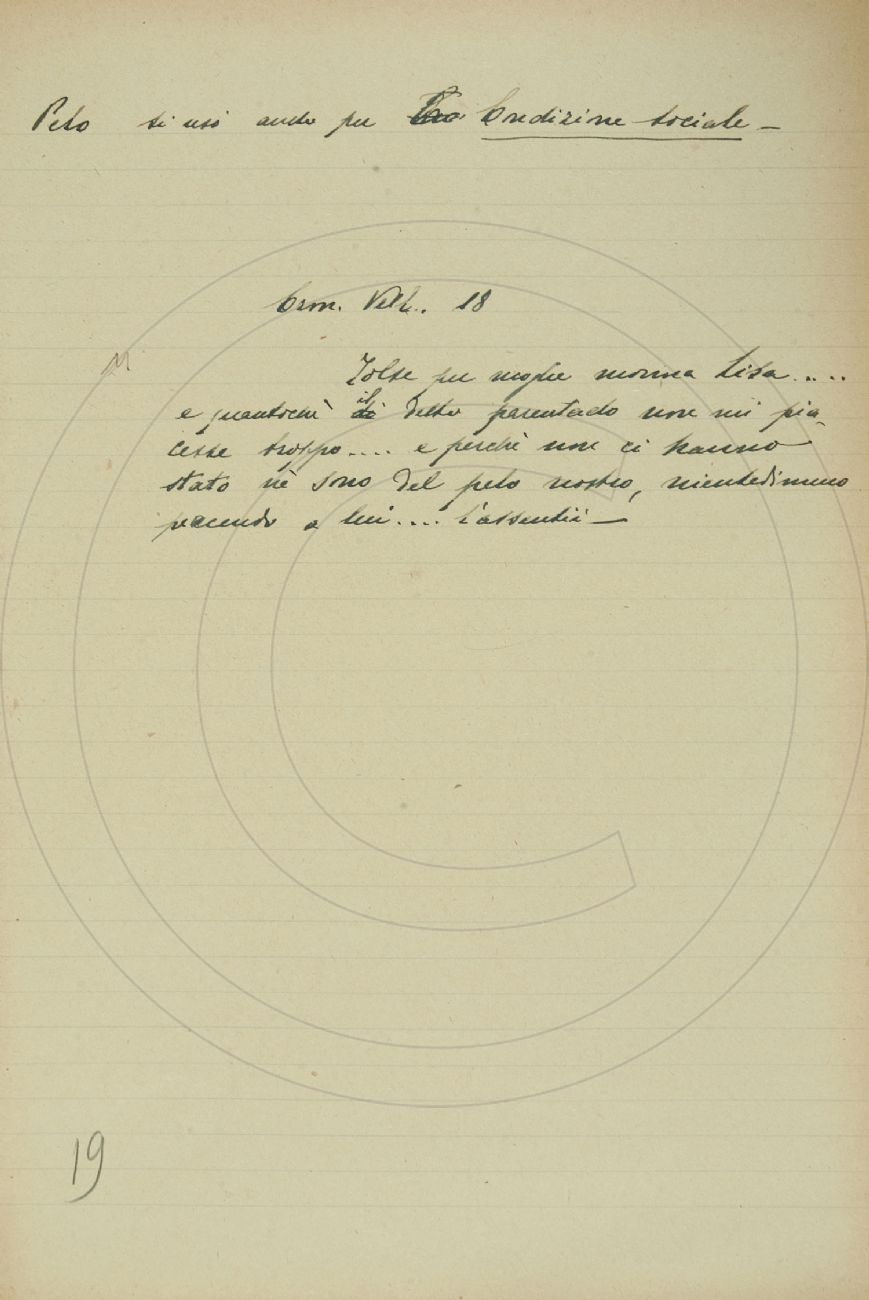 Pelo si usò anche per Condizione sociale –
Cron. Vell. 18
Tolse per moglie monna Lisa.....
e quantochè il detto parentado non mi pia-
cesse troppo.... e perchè non ci hanno
stato nè sono del pelo nostro, nientedimeno
piacendo a lui.... l'assentii —
19